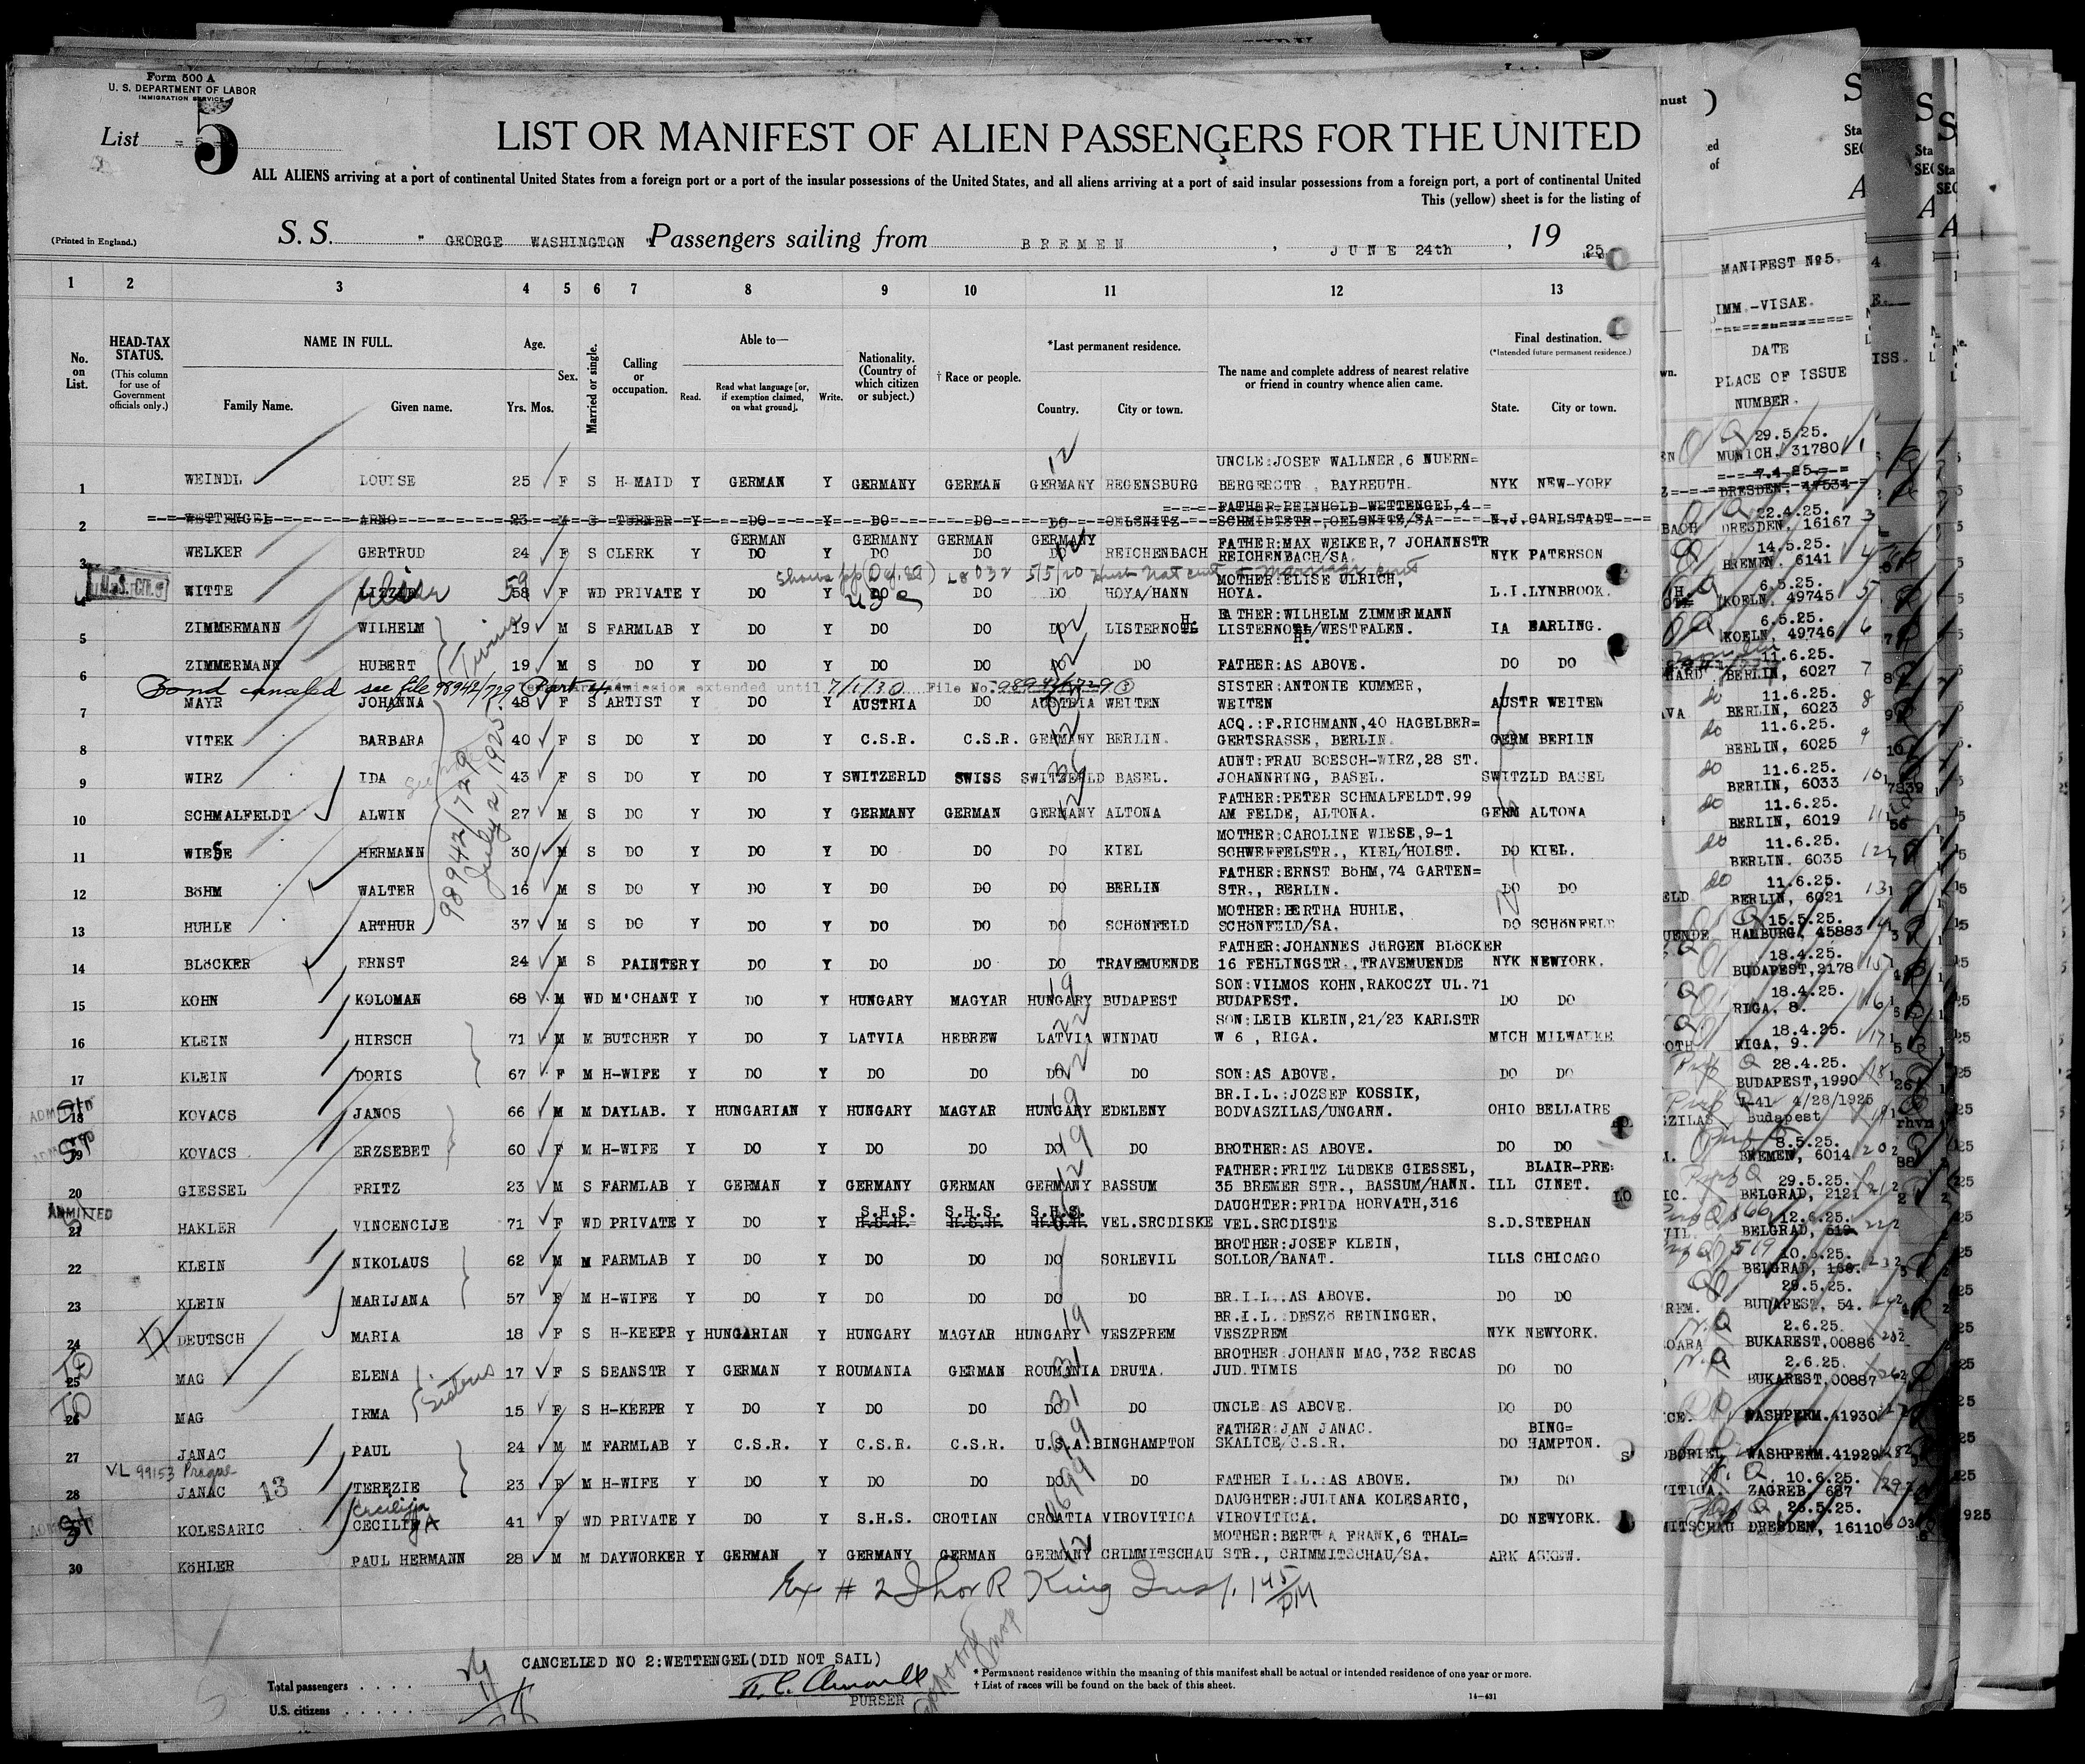 Form 500 A
U. S. DEPARTMENT OF LABOR
IMMIGRATION SERVICE
List 5
LIST OR MANIFEST OF ALIEN PASSENGERS FOR THE UNITED
ALL ALIENS arriving at a port of continental United States from a foreign port or a port of the insular possessions of the United States, and all aliens arriving at a port of said insular possessions from a foreign port, a port of continental United
This (yellow) sheet is for the listing of
(Printed in England.)
S. S. " GEORGE WASHINGTON " Passengers sailing from BREMEN , JUNE 24th , 19 25
1 2 3 4 5 6 7 8 9 10 11 12 13
No. on List.
HEAD-TAX STATUS. (This column for use of Government officials only.)
NAME IN FULL.
Family Name. Given name.
Age. Yrs. Mos.
Sex.
Married or single.
Calling or occupation.
Able to—
Read. Read what language [or, if exemption claimed, on what ground]. Write.
Nationality. (Country of which citizen or subject.)
† Race or people.
*Last permanent residence.
Country. City or town.
The name and complete address of nearest relative or friend in country whence alien came.
Final destination.
(*Intended future permanent residence.)
State. City or town.
UNCLE:JOSEF WALLNER,6 NUERN=
1 WEINDL LOUISE 25 F S H-MAID Y GERMAN Y GERMANY GERMAN GERMANY REGENSBURG BERGERSTR , BAYREUTH. NYK NEW-YORK
FATHER:REINHOLD WETTENGEL,4
2 WETTENGEL ARNO 23 M S TURNER Y DO Y DO DO DO OELSNITZ SCHMIDTSTR.,OELSNITZ/SA N.J.CARLSTADT
GERMAN GERMANY GERMAN GERMANY FATHER:MAX WELKER,7 JOHANNSTR
3 WELKER GERTRUD 24 F S CLERK Y DO Y DO DO DO REICHENBACH REICHENBACH/SA. NYK PATERSON
U.S. CIT.
MOTHER:ELISE ULRICH,
4 WITTE LIZZIE 59 58 F WD PRIVATE Y DO Y DO DO DO HOYA/HANN HOYA. L.I.LYNBROOK.
FATHER:WILHELM ZIMMERMANN
5 ZIMMERMANN WILHELM 19 M S FARMLAB Y DO Y DO DO DO LISTERNOHL LISTERNOHL/WESTFALEN. IA EARLING.
Twins
6 ZIMMERMANN HUBERT 19 M S DO Y DO Y DO DO DO DO FATHER:AS ABOVE. DO DO
Bond canceled see file 98942/729 admission extended until 7/1/30 File No. 98942/729
SISTER:ANTONIE KUMMER,
7 MAYR JOHANNA 48 F S ARTIST Y DO Y AUSTRIA DO AUSTRIA WEITEN WEITEN AUSTR WEITEN
ACQ.:F.RICHMANN,40 HAGELBER=
8 VITEK BARBARA 40 F S DO Y DO Y C.S.R. C.S.R. GERMANY BERLIN. GERTSRASSE, BERLIN. GERM BERLIN
98942/729 July 2, 1925
AUNT:FRAU BOESCH-WIRZ,28 ST.
9 WIRZ IDA 43 F S DO Y DO Y SWITZERLD SWISS SWITZERLD BASEL. JOHANNRING, BASEL. SWITZLD BASEL
FATHER:PETER SCHMALFELDT.99
10 SCHMALFELDT ALWIN 27 M S DO Y DO Y GERMANY GERMAN GERMANY ALTONA AM FELDE, ALTONA. GERM ALTONA
MOTHER:CAROLINE WIESE,9-1
11 WIESE HERMANN 30 M S DO Y DO Y DO DO DO KIEL SCHWEFFELSTR., KIEL/HOLST. DO KIEL.
FATHER:ERNST BöHM,74 GARTEN=
12 BöHM WALTER 16 M S DO Y DO Y DO DO DO BERLIN STR., BERLIN. DO DO
MOTHER:BERTHA HUHLE,
13 HUHLE ARTHUR 37 M S DO Y DO Y DO DO DO SCHöNFELD SCHöNFELD/SA. DO SCHöNFELD
FATHER:JOHANNES JüRGEN BLöCKER
14 BLöCKER ERNST 24 M S PAINTER Y DO Y DO DO DO TRAVEMUENDE 16 FEHLINGSTR.,TRAVEMUENDE NYK NEWYORK.
SON:VILMOS KOHN,RAKOCZY UL.71
15 KOHN KOLOMAN 68 M WD M'CHANT Y DO Y HUNGARY MAGYAR HUNGARY BUDAPEST BUDAPEST. DO DO
SON:LEIB KLEIN,21/23 KARLSTR
16 KLEIN HIRSCH 71 M M BUTCHER Y DO Y LATVIA HEBREW LATVIA WINDAU W 6 , RIGA. MICH MILWAUKE
17 KLEIN DORIS 67 F M H-WIFE Y DO Y DO DO DO DO SON:AS ABOVE. DO DO
BR.I.L.:JOZSEF KOSSIK,
ADMITTED
18 KOVACS JANOS 66 M M DAYLAB. Y HUNGARIAN Y HUNGARY MAGYAR HUNGARY EDELENY BODVASZILAS/UNGARN. OHIO BELLAIRE
19 KOVACS ERZSEBET 60 F M H-WIFE Y DO Y DO DO DO DO BROTHER:AS ABOVE. DO DO
FATHER:FRITZ LüDEKE GIESSEL, BLAIR-PRE:
20 GIESSEL FRITZ 23 M S FARMLAB Y GERMAN Y GERMANY GERMAN GERMANY BASSUM 35 BREMER STR., BASSUM/HANN. ILL CINET.
ADMITTED
S.H.S. S.H.S. S.H.S. DAUGHTER:FRIDA HORVATH,316
21 HAKLER VINCENCIJE 71 F WD PRIVATE Y DO Y H.S.H. H.S.H. H.S.H. VEL.SRCDISKE VEL.SRCDISTE S.D.STEPHAN
BROTHER:JOSEF KLEIN,
22 KLEIN NIKOLAUS 62 M M FARMLAB Y DO Y DO DO DO SORLEVIL SOLLOR/BANAT. ILLS CHICAGO
23 KLEIN MARIJANA 57 F M H-WIFE Y DO Y DO DO DO DO BR.I.L.:AS ABOVE. DO DO
BR.I.L.:DESZö REININGER,
24 DEUTSCH MARIA 18 F S H-KEEPR Y HUNGARIAN Y HUNGARY MAGYAR HUNGARY VESZPREM VESZPREM NYK NEWYORK.
BROTHER JOHANN MAG,732 RECAS
25 MAG ELENA 17 F S SEANSTR Y GERMAN Y ROUMANIA GERMAN ROUMANIA DRUTA. JUD.TIMIS DO DO
Sisters
26 MAG IRMA 15 F S H-KEEPR Y DO Y DO DO DO DO UNCLE AS ABOVE. DO DO
FATHER:JAN JANAC. BING=
27 JANAC PAUL 24 M M FARMLAB Y C.S.R. Y C.S.R. C.S.R. U.S.A. BINGHAMPTON SKALICE/C.S.R. DO HAMPTON.
VL 99153 Prague
28 JANAC 13 TEREZIE 23 F M H-WIFE Y DO Y DO DO DO DO FATHER I.L.:AS ABOVE. DO DO
Cecilija DAUGHTER:JULIANA KOLESARIC,
29 KOLESARIC CECILIJA 41 F WD PRIVATE Y DO Y S.H.S. CROTIAN CROATIA VIROVITICA VIROVITICA. DO NEWYORK.
MOTHER:BERTHA FRANK,6 THAL=
30 KöHLER PAUL HERMANN 28 M M DAYWORKER Y GERMAN Y GERMANY GERMAN GERMANY CRIMMITSCHAU STR., CRIMMITSCHAU/SA. ARK ASKEW.
Ex # 2 King Insp. 1 45 PM
CANCELLED NO 2:WETTENGEL(DID NOT SAIL)
PURSER
Total passengers . . . .
U.S. citizens . . . . .
* Permanent residence within the meaning of this manifest shall be actual or intended residence of one year or more.
† List of races will be found on the back of this sheet.
14-431
MANIFEST No5.
IMM.-VISAE.
DATE
PLACE OF ISSUE
NUMBER.
29.5.25.
MUNICH, 31780 1
7.4.25.
DRESDEN, 47534
22.4.25.
DRESDEN, 16167 3
14.5.25.
BREMEN, 6141 4
6.5.25.
KOELN, 49745 5
6.5.25.
KOELN, 49746 6
11.6.25.
BERLIN, 6027 7
11.6.25.
BERLIN, 6023 8
11.6.25.
BERLIN, 6025 9
11.6.25.
BERLIN, 6033 10
11.6.25.
BERLIN, 6019 11
11.6.25.
BERLIN. 6035 12
11.6.25.
BERLIN, 6021 13
15.5.25.
HAMBURG, 45883 14
18.4.25.
BUDAPEST,2178 15
18.4.25.
RIGA, 8. 16
18.4.25.
RIGA, 9. 17
28.4.25.
BUDAPEST,1990 18
V-41 4/28/1925
Budapest 19
8.5.25.
BREMEN, 6014 20
29.5.25.
BELGRAD, 2121 21
12.6.25.
BELGRAD, 22
10.6.25.
BELGRAD, 166. 23
29.5.25.
BUDAPEST, 54. 24
2.6.25.
BUKAREST,00886
2.6.25.
BUKAREST,00887 26
WASHPERM.41930 27
WASHPERM.41929 28
10.6.25.
ZAGREB, 687 29
26.5.25.
DRESDEN, 16110